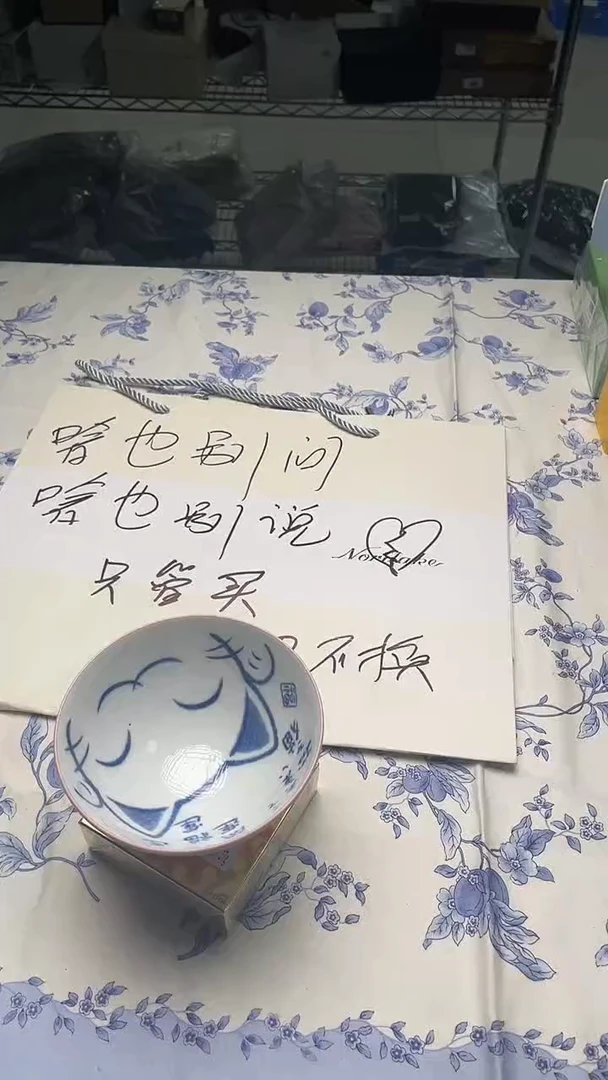 啥也别问
啥也别说
Noritake
只管买
不换
福